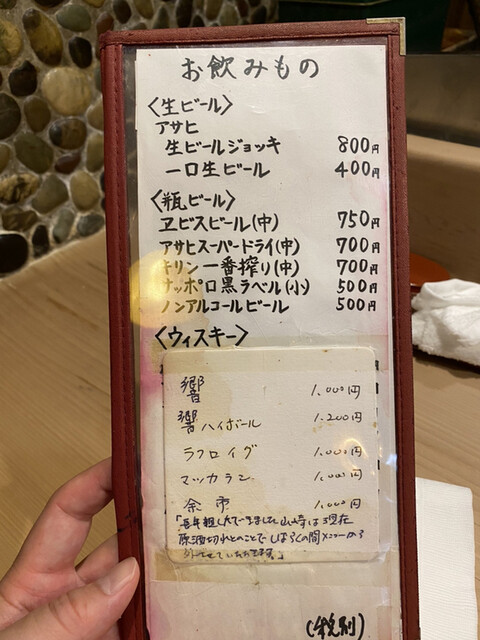 お飲みもの
〈生ビール〉
アサヒ
生ビールジョッキ 800円
一口生ビール 400円
〈瓶ビール〉
ヱビスビール(中) 750円
アサヒスーパードライ(中) 700円
キリン一番搾り(中) 700円
サッポロ黒ラベル(小) 500円
ノンアルコールビール 500円
〈ウィスキー〉
響 1,000円
響ハイボール 1,200円
ラフロイグ 1,000円
マッカラン 1,000円
余市 1,000円
「長年親しんで
山崎は現在
原酒切れとのことでしばらくの間メニューから
外させていただきます。」
(税別)